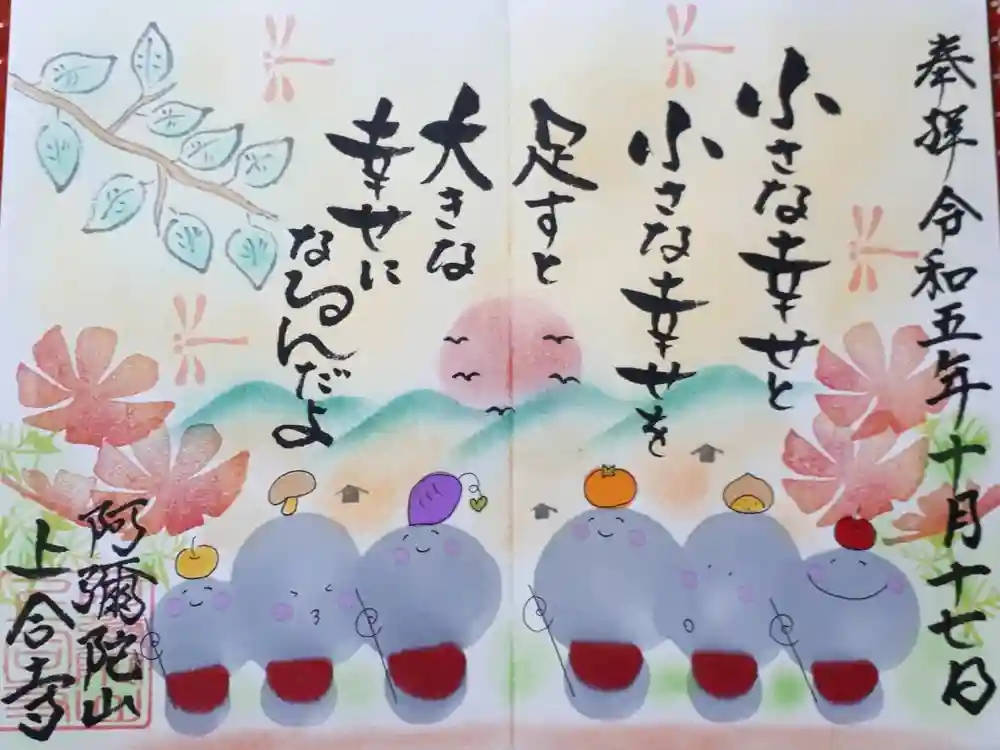 奉拝 令和五年十月十七日
小さな幸せと
小さな幸せを
足すと
大きな
幸せに
なるんだよ
阿彌陀山
上合寺